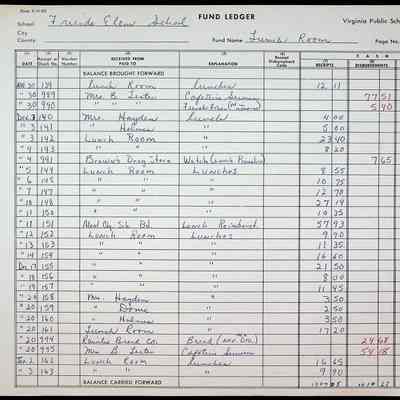 School: Friends Elem School FUND LEDGER Virginia Public Sch
City
County Fund Name Lunch Room Page No.
DATE RECEIVED FROM PAID TO EXPLANATION RECEIPTS DISBURSEMENTS
BALANCE BROUGHT FORWARD
Nov 30 139 Lunch Room Lunches 12 11
" 30 989 Mrs. B. Lester 77 51
" 30 990 " " 5 40
Dec 3 140 Mrs. Hayden Lunch 4 00
" 3 141 " Holmes " 5 00
" 3 142 Lunch Room " 23 40
" 4 143 " " " 8 20
" 4 991 Brown's Drug Store 7 65
" 5 144 Lunch Room Lunches 8 55
" 6 145 " " " 10 75
" 7 147 " " " 12 70
" 10 148 " " " 27 19
" 11 150 " " " 10 35
" 11 151 Sch. Bd. Lunch Reimburst 57 93
" 12 152 Lunch Room Lunches 9 70
" 13 153 " " " 11 35
" 14 154 " " " 16 60
Dec. 17 155 " " " 21 50
" 18 156 " " " 8 00
" 19 157 " " " 11 45
" 20 158 Mrs. Hayden " 3 50
" 20 159 " Dome " 2 50
" 20 160 " Holmes " 3 50
" 20 161 Lunch Room " 17 20
" 20 994 Bread Co. Bread 24 68
" 20 995 Mrs B Lester 54 18
Jan. 2 162 Lunch Room Lunches 16 65
" 3 163 " " " 9 90
BALANCE CARRIED FORWARD